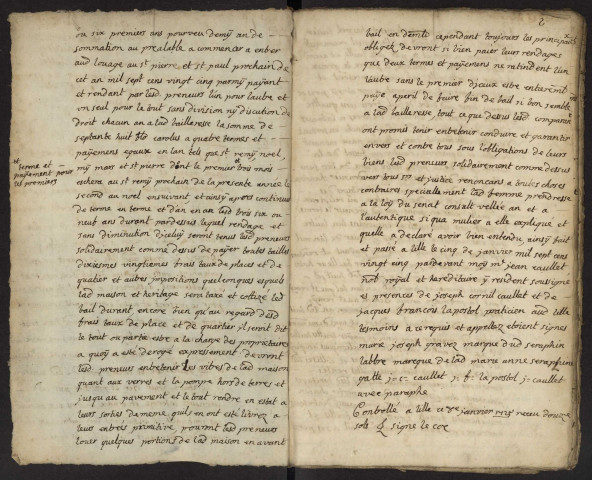 ou six premiers ans pourveu demÿ an de
sommation au prealable a commencer a entrer
aud louage au st pierre et st paul prochain de
cet an mil sept cens vingt cinq parmÿ paÿant
et rendant par lesd preneurs l'un pour l'autre et
un seul pour le tout sans division nÿ discution de
droit chacun an a lad bailleresse la somme de
septante huit flo carolus a quatre termes et
paÿemens egaux en lan tels que st remÿ noel
mÿ mars et st pierre dont le premier trois mois
et terme et
paÿement pour
les premiers
eschera au st remÿ prochain de la presente année le
second au noel ensuivant et ainsÿ apres continuer
de terme en terme et d'an en an lesd trois six ou
neuf ans durant pardessus lequel rendage et
sans diminution d'iceluÿ seront tenus lesd preneurs
solidairement comme dessus de païer toutes tailles
dixiesmes vingtiesmes frais taux de places et de
quatier et autres impositions quelconques esquels
lad maison et heritage sera taxé et cottizé led
bail durant encore bien qu'au regard desd
frais taux de place et de quartier il seront dit
le tout ou partie estre a la charge des proprietaires
a quoÿ a esté derogé expressement devront
lesd preneurs entretenir les vitres de lad maison
quant aux verres et la pompe hors de terres et
jusqu au pavement et le tout rendre en estat a
leurs sorties de meme quils en ont esté livrez a
leur entrée primitive, pourront lesd preneurs
louer quelques portions de lad maison en avant
2
bail en demte cependant toujours les principaux
obligez devront si bien paier leurs rendages
que deux termes et paÿemens ne ratindent l'un
l'autre sans le premier d'jceux estre entieremt
paÿé aperil de faire fin de bail si bon semble
a lad bailleresse tout ce que dessus lesd comparans
ont promis tenir entretenir conduire et garantir
envers et contre tous sous l'obligations de leurs
biens lesd preneurs solidairement comme dessus
vers tous srs et justice renoncans a toutes choses
contraires specialement lad femme prendresse
a la loÿ du senat consult velleïan et a
l'autentique si qua mulier a elle expliqué et
quelle a declaré avoir bien entendu ainsÿ fait
et passé a lille le cinq de janvier mil sept cens
vingt cinq pardevant moÿ me jean caullet
not roÿal et hereditaire ÿ residant soussigné
es presences de joseph cornil caullet et de
jacques francois lapostol praticien aud lille
tesmoins a ce requis et appellez etoient signés
marie joseph gravez marque dud seraphin
labbre marcque de lad marie anne seraphin
gallé j: c: caullet j: f: lapostol j: caullet
avec paraphe
Controllé a lille ce janvier receu douze
sols signé le